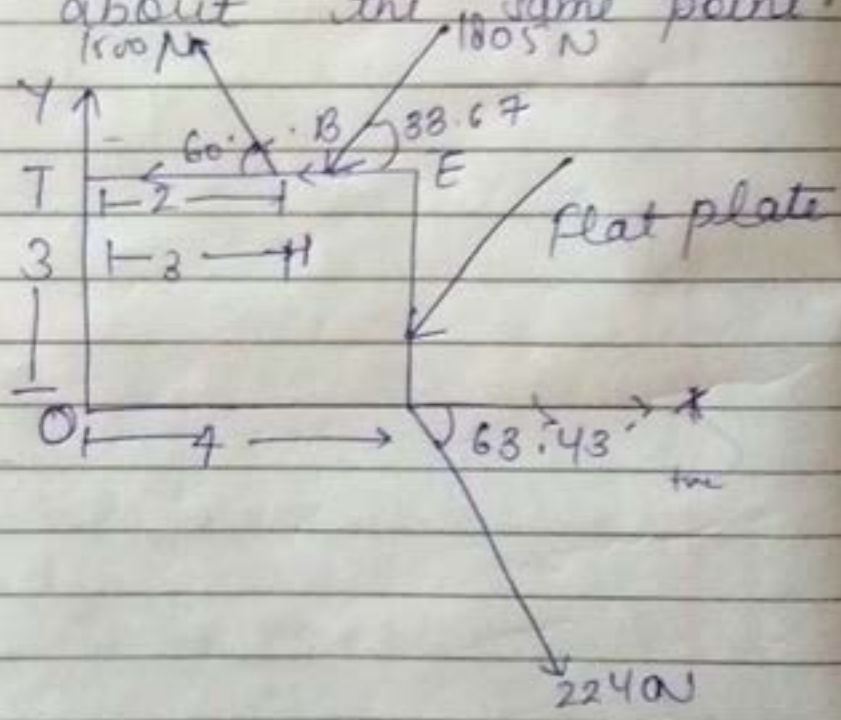 about the same point.
1500 N 1805 N
Y
60° B 33.67
T E
2
Flat plate
3 3
O X
4 63.43°
2240N